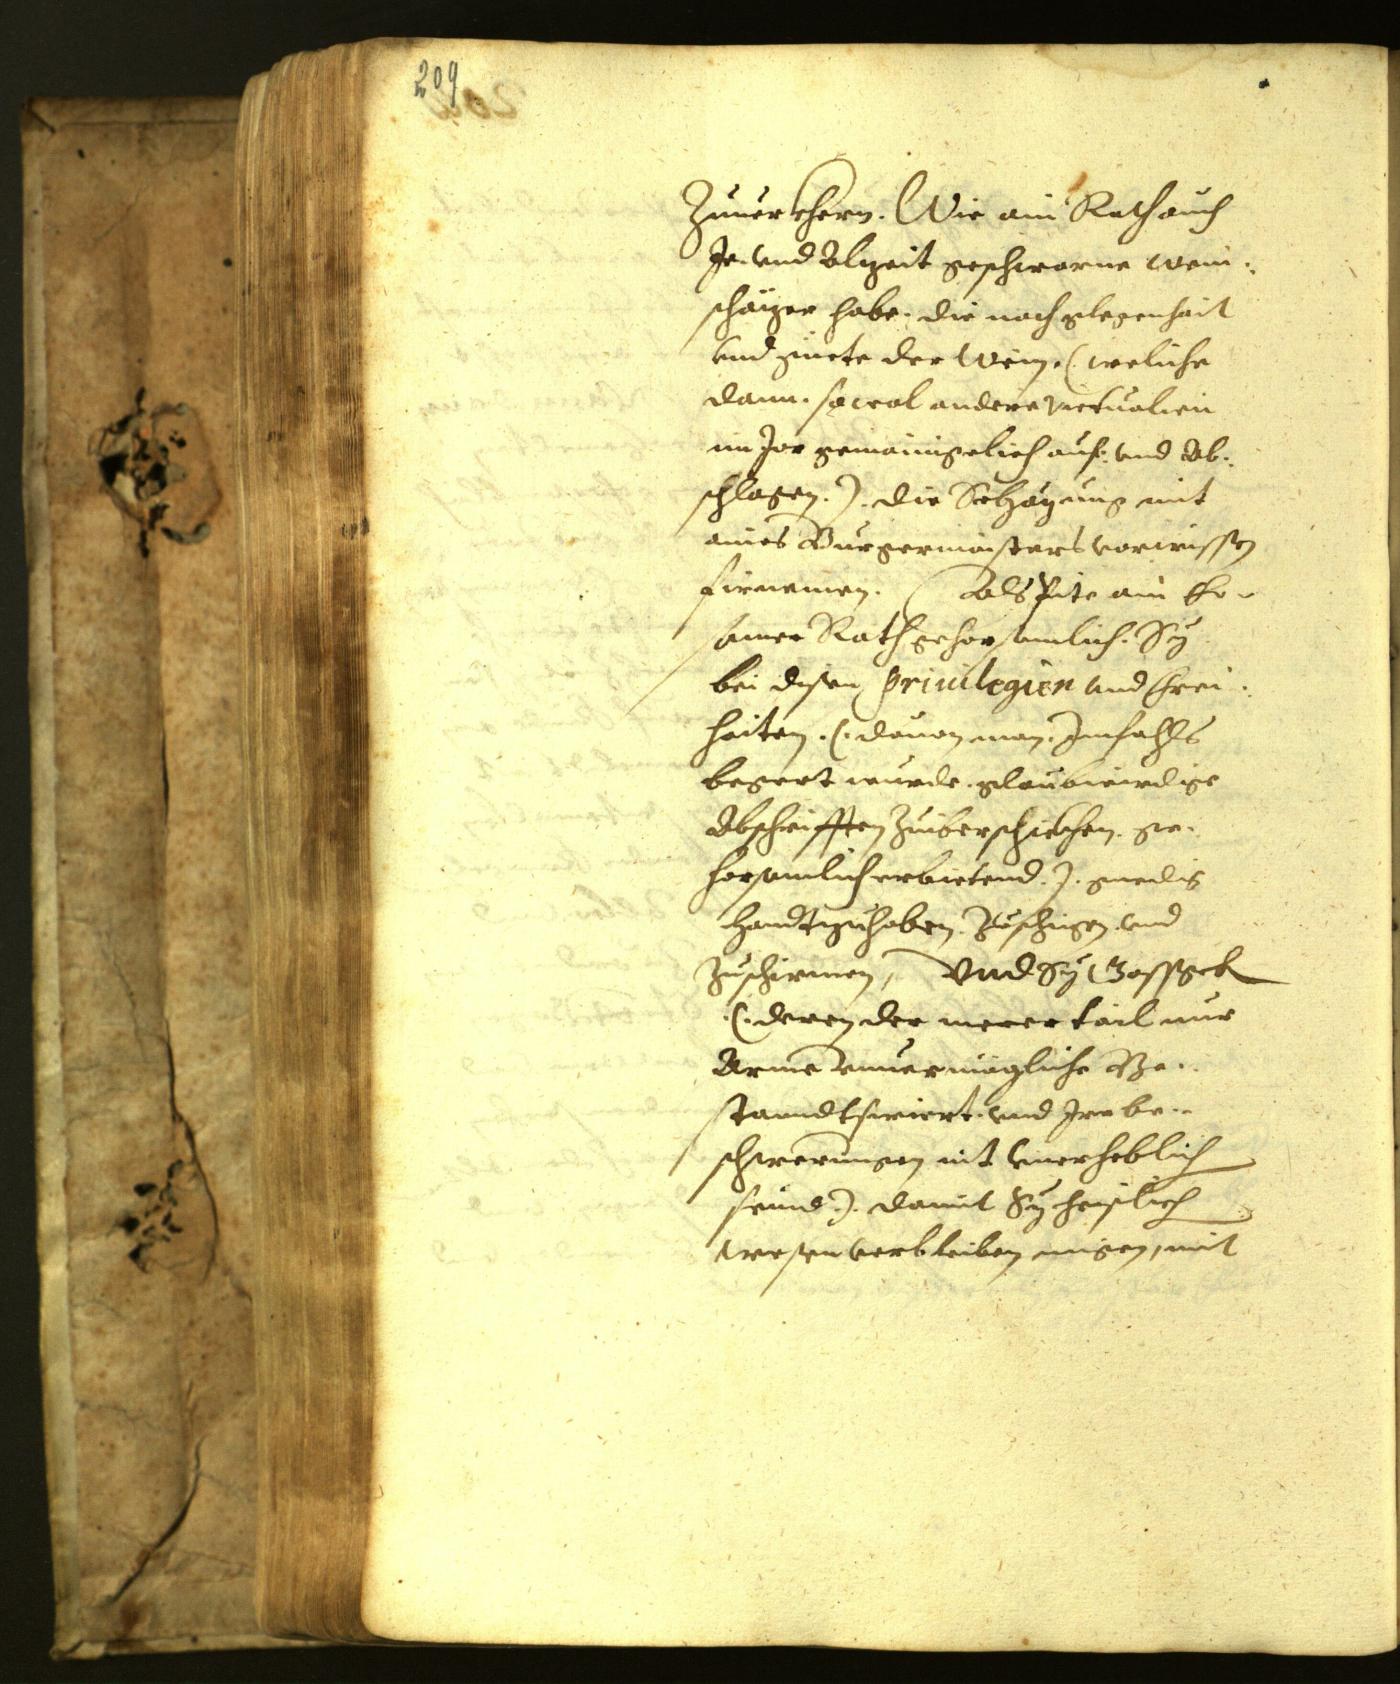 209
Zuuerkhern. Wie ain Rath auch
Je. vnd Alzeit geschworne wein:
schäzer habe. die nach glegenhait
vnd güete der Wein. (: weliche
dann. sowol andere Victualien
im Jar gemainigelich auf: vnd Ab:
schlagen :). die Schäzung mit
aines Burgermaisters vorwissen
fürnemen. Als Pite ain Er-
samer Rath gehorsamlich. Sy
bei disen Priuilegien vnd Frei:
haiten. (: dauon man. Imfahls
begert wurde. glaubwirdige
Abschrifften Zuiberschickhen. ge-
horsamlich erbietend :). gnedig
Handtzuhaben. Zuschizen vnd
Zuschirmen, Vnd Sy Gastgeb
(: deren der merer tail nur
Arme vnuermügliche Be-
standtswiert. vnd Jre be-
schwerungen nit vnerheblich
seind :). damit Sy heislich
wesen verbleiben mügen, mit